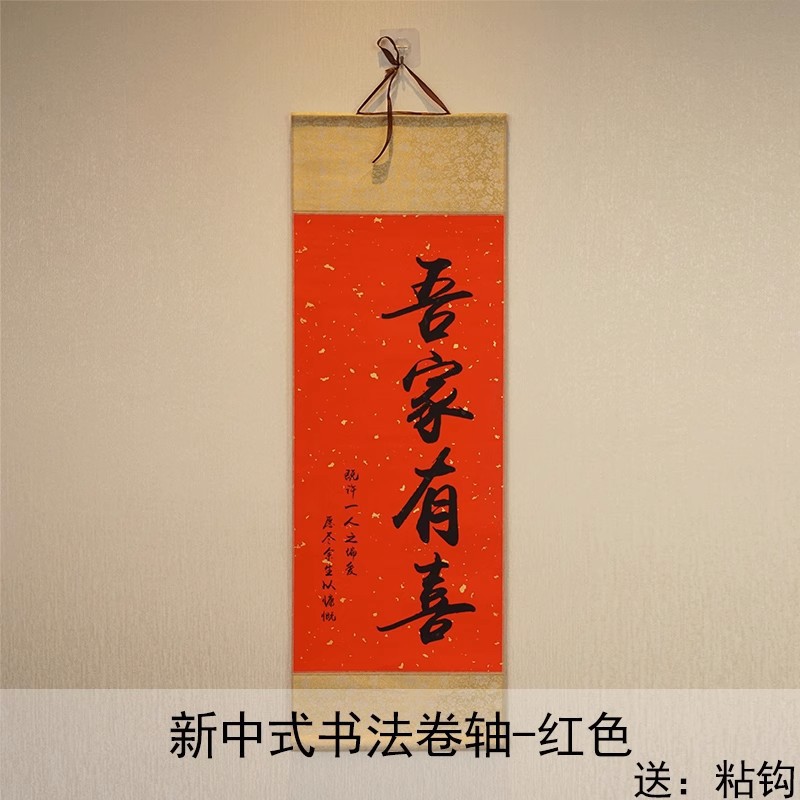 吾家有喜
既许一人之偏爱
愿尽余生以慷慨
新中式书法卷轴-红色
送：粘钩